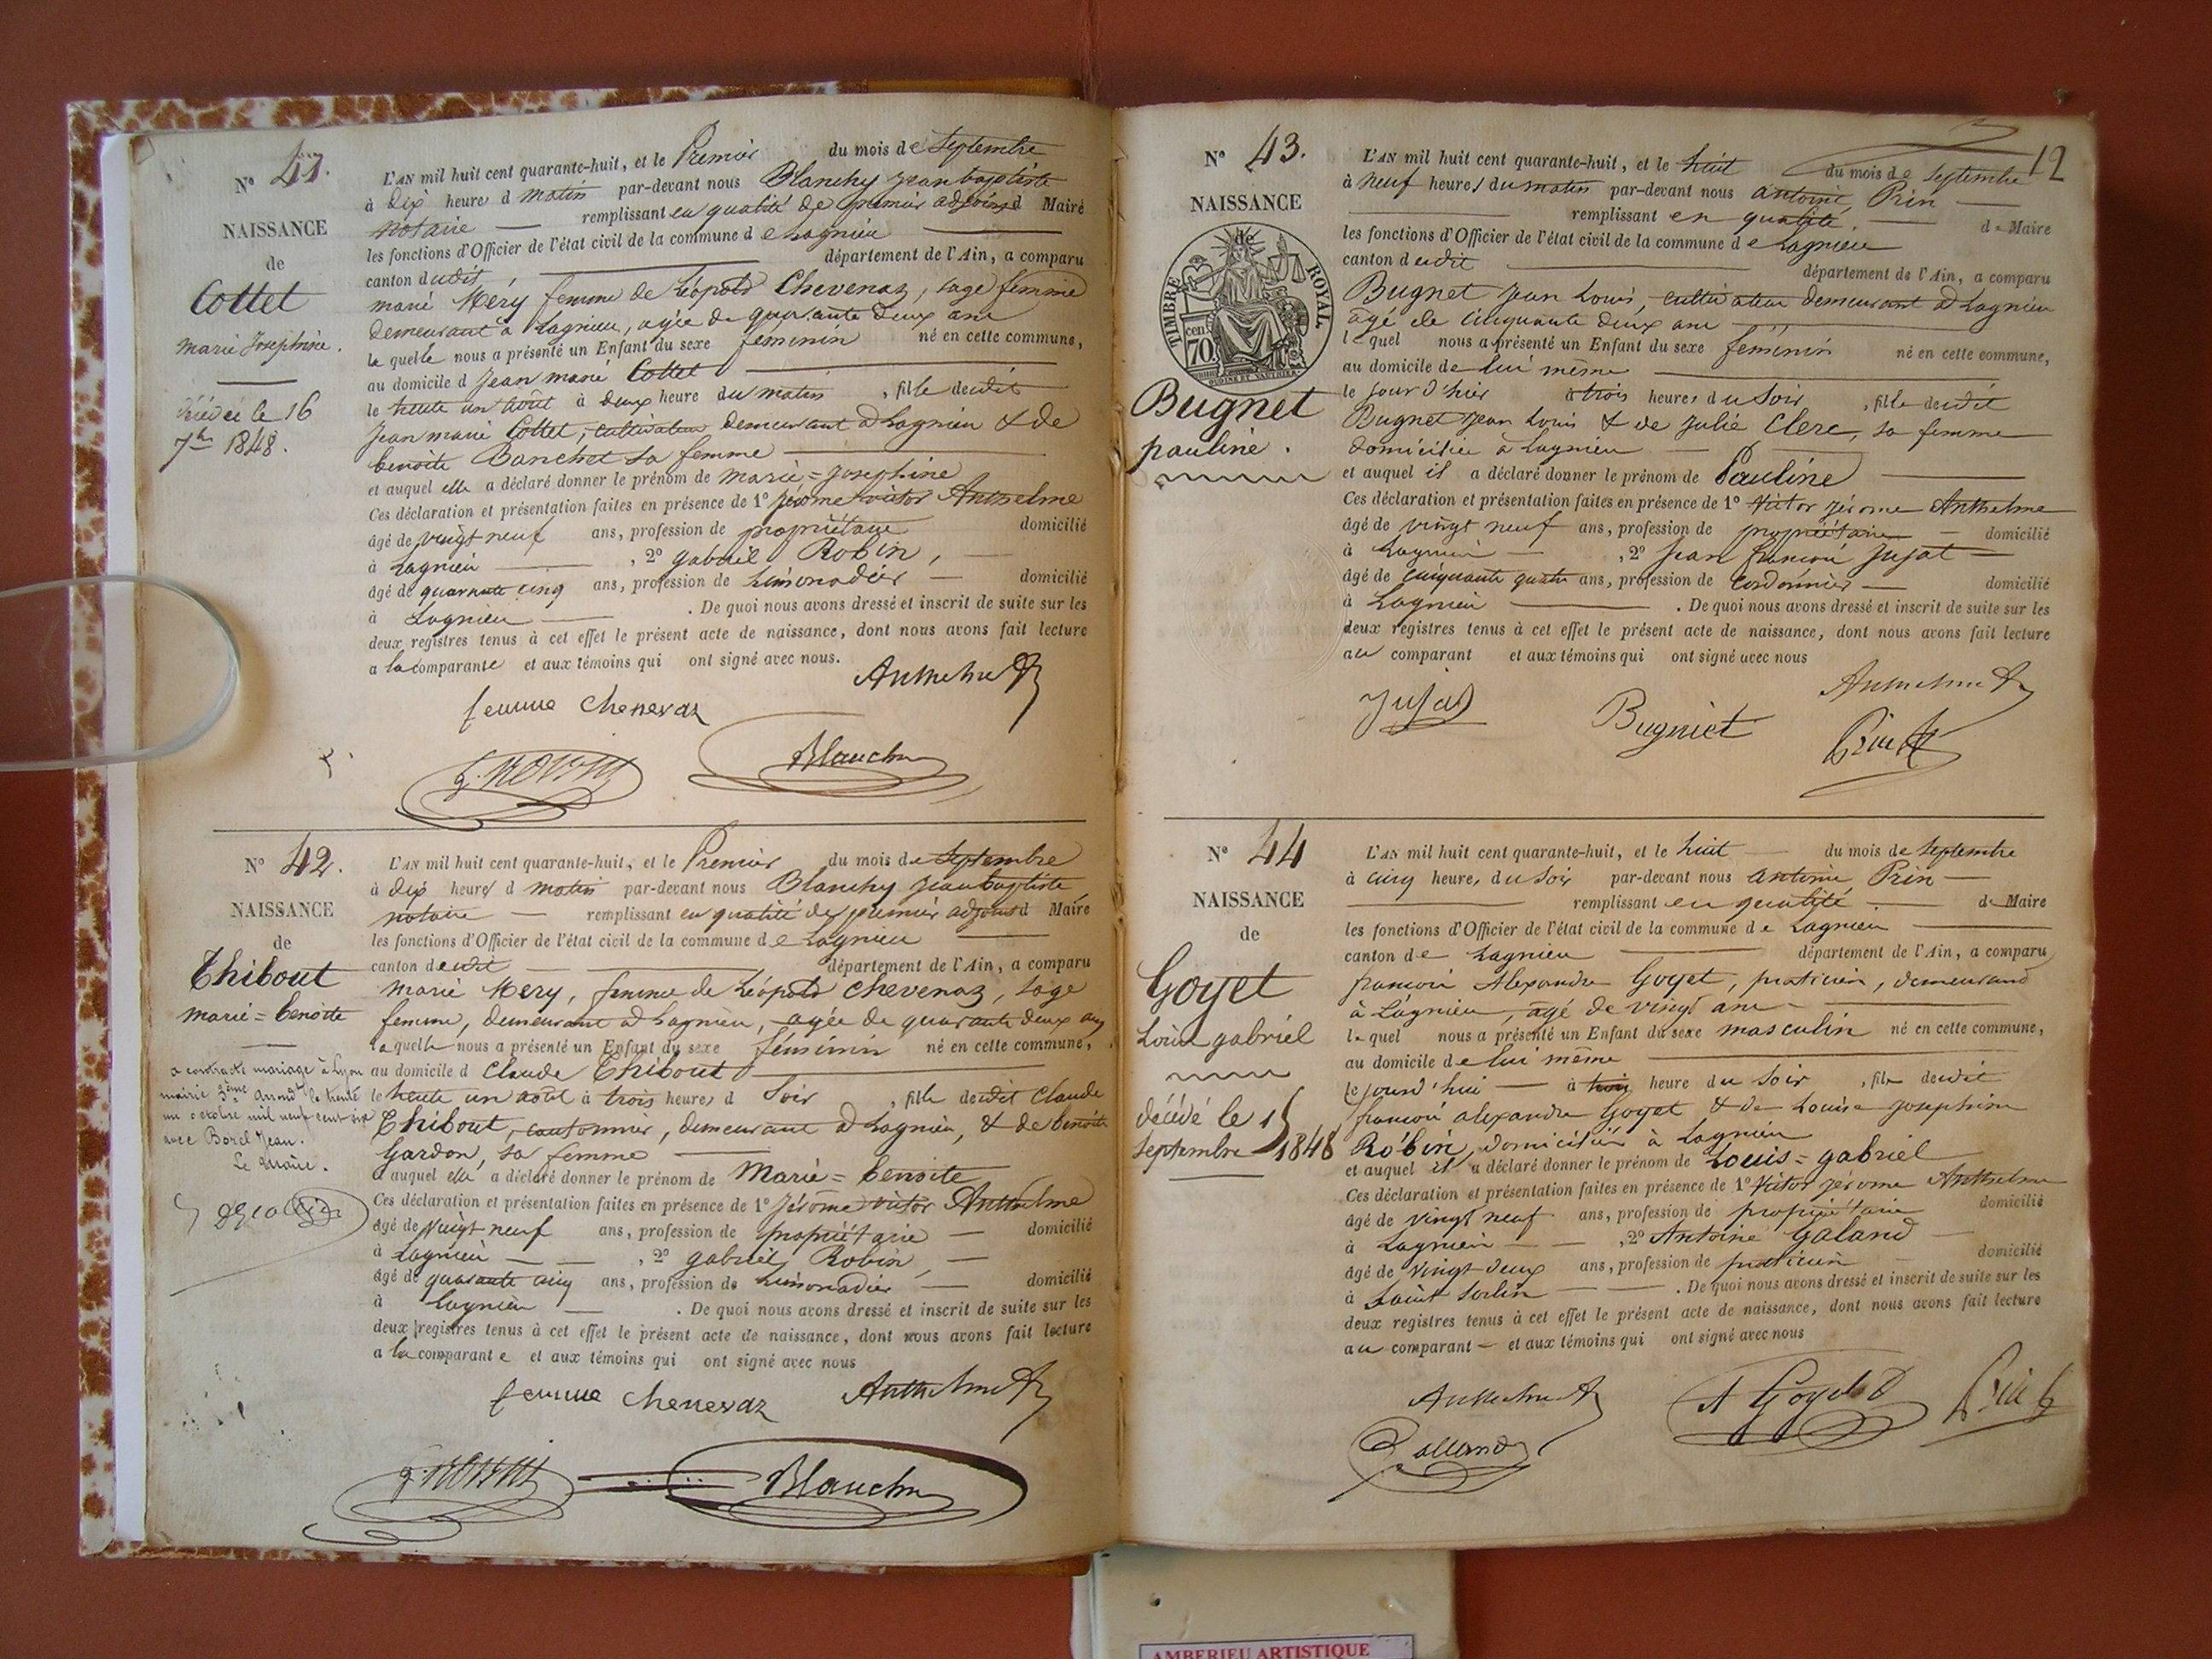 N° 41.
NAISSANCE
de
Cottet
marie Josephine.
décédée le 16
7bre 1848.
L'AN mil huit cent quarante-huit, et le Premier du mois de Septembre
à dix heures d matin par-devant nous Blanchy Jean baptiste
notaire — remplissant en qualité de premier adjoint d Maire
les fonctions d'Officier de l'état civil de la commune de Lagnieu
canton dudit, département de l'Ain, a comparu
marie Méry femme de Léopold Chevenaz, sage femme
demeurant à Lagnieu, agée de quarante deux ans
la quelle nous a présenté un Enfant du sexe féminin né en cette commune,
au domicile d Jean marie Cottet
le trente un août à deux heure du matin, fille dudit
Jean marie Cottet, cultivateur demeurant à Lagnieu & de
benoite Banchet sa femme
et auquel elle a déclaré donner le prénom de marie = josephine
Ces déclaration et présentation faites en présence de 1° Jérome victor Anthelme
âgé de vingt neuf ans, profession de propriétaire domicilié
à Lagnieu — , 2° gabriel Robin, —
âgé de quarante cinq ans, profession de Limonadier — domicilié
à Lagnieu — . De quoi nous avons dressé et inscrit de suite sur les
deux registres tenus à cet effet le présent acte de naissance, dont nous avons fait lecture
a la comparante et aux témoins qui ont signé avec nous.
Anthelme
femme Chenevaz
Blanchy
N° 42.
NAISSANCE
de
Thibout
marie = benoite
a contracté mariage à Lyon
mairie 3ème arrondt le trente
un octobre mil neuf cent six
avec Borel Jean.
Le Maire.
L'AN mil huit cent quarante-huit, et le Premier du mois de Septembre
à dix heures d matin par-devant nous Blanchy Jean baptiste
notaire — remplissant en qualité de premier adjoint d Maire
les fonctions d'Officier de l'état civil de la commune de Lagnieu
canton dudit — département de l'Ain, a comparu
marie Mery, femme de Léopold Chevenaz, sage
femme, demeurant à Lagnieu, agée de quarante deux ans
laquelle nous a présenté un Enfant du sexe féminin né en cette commune,
au domicile d Claude Thibout
le trente un août à trois heures d Soir, fille dudit Claude
Thibout, cantonnier, demeurant à Lagnieu, & de benoite
Gardon, sa femme
a auquel elle a déclaré donner le prénom de Marie = benoite
Ces déclaration et présentation faites en présence de 1° Jérome victor Anthelme
âgé de vingt neuf ans, profession de propriétaire — domicilié
à Lagnieu — , 2° gabriel Robin, —
âgé de quarante cinq ans, profession de Limonadier — domicilié
à Lagnieu — . De quoi nous avons dressé et inscrit de suite sur les
deux registres tenus à cet effet le présent acte de naissance, dont nous avons fait lecture
a la comparante et aux témoins qui ont signé avec nous
femme Chenevaz Anthelme
Blanchy
12
N° 43.
NAISSANCE
de
TIMBRE ROYAL
70 cen
Bugnet
pauline.
L'AN mil huit cent quarante-huit, et le huit du mois de Septembre
à neuf heures du matin par-devant nous antoine Prin —
remplissant en qualité. — de Maire
les fonctions d'Officier de l'état civil de la commune de Lagnieu
canton dudit département de l'Ain, a comparu
Bugnet Jean Louis, cultivateur demeurant à Lagnieu
âgé de cinquante deux ans
lequel nous a présenté un Enfant du sexe féminin né en cette commune,
au domicile de lui même
le jour d'hier à trois heures du Soir, fille dudit
Bugnet Jean Louis & de Julie Clerc, sa femme
domiciliée à Lagnieu
et auquel il a déclaré donner le prénom de Pauline
Ces déclaration et présentation faites en présence de 1° Victor Jérome Anthelme
âgé de vingt neuf ans, profession de propriétaire — domicilié
à Lagnieu — , 2° Jean francois Jujat
âgé de cinquante quatre ans, profession de Cordonnier — domicilié
à Lagnieu — . De quoi nous avons dressé et inscrit de suite sur les
deux registres tenus à cet effet le présent acte de naissance, dont nous avons fait lecture
au comparant et aux témoins qui ont signé avec nous
Anthelme
Jujat
Bugniet
Prin
N° 44
NAISSANCE
de
Goyet
Louis gabriel
décédé le 15
Septembre 1848
L'AN mil huit cent quarante-huit, et le huit du mois de Septembre
à cinq heures du Soir par-devant nous antoine Prin —
remplissant en qualité. — de Maire
les fonctions d'Officier de l'état civil de la commune de Lagnieu
canton de Lagnieu département de l'Ain, a comparu
francois Alexandre Goyet, praticien, demeurant
à Lagnieu, agé de vingt ans
lequel nous a présenté un Enfant du sexe masculin né en cette commune,
au domicile de lui même
le jourd'hui — à trois heure du Soir, fils dudit
francois alexandre Goyet & de Louise Josephine
Robin, domiciliés à Lagnieu
et auquel il a déclaré donner le prénom de Louis = gabriel
Ces déclaration et présentation faites en présence de 1° Victor Jérome Anthelme
âgé de vingt neuf ans, profession de propriétaire domicilié
à Lagnieu — , 2° Antoine Galand
âgé de vingt deux ans, profession de praticien domicilié
à Saint Sorlin — . De quoi nous avons dressé et inscrit de suite sur les
deux registres tenus à cet effet le présent acte de naissance, dont nous avons fait lecture
au comparant — et aux témoins qui ont signé avec nous
Anthelme A Goyet Prin
Galland
AMBERIEU ARTISTIQUE